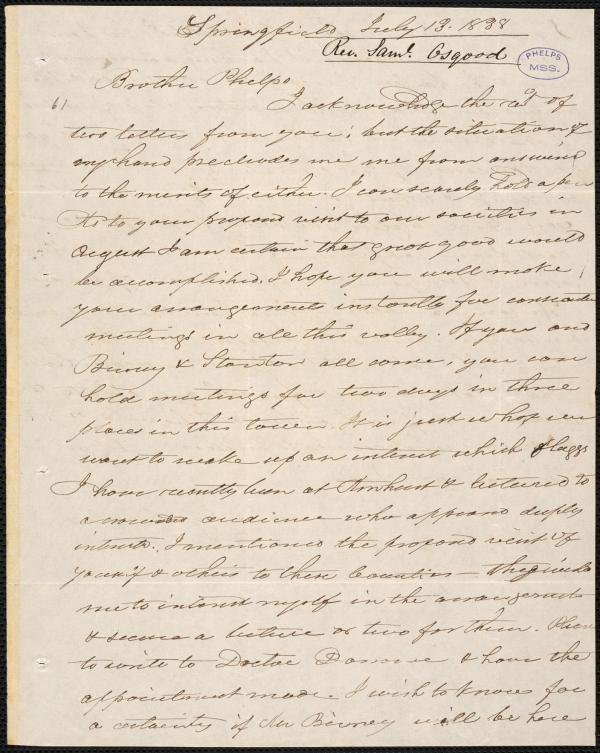 Springfield July 13. 1838
Rev. Saml. Osgood
PHELPS
MSS.
Brother Phelps
61
I acknowledge the recd of
two letters from you; but the situation of
my hand precludes me me from answering
to the merits of either. I can scarcely hold a pen
As to your proposed visit to our societies in
August I am certain that great good would
be accomplished. I hope you will make
your arrangements instantly for
meetings in all this valley. If you and
Birney & Stanton all come, you can
hold meetings for two days in three
places in this town. It is just what we
want to wake up an interest which flaggs
I have recently been at Amherst & lectured to
a crowded audience who appeared deeply
interested. I mentioned the proposed visit of
yourself & others to these Counties —
me to interest myself in the arrangements
& secure a lecture or two for them. Please
to write to Doctor & have the
appointment made. I wish to know for
a certainty if Mr Birney will be here